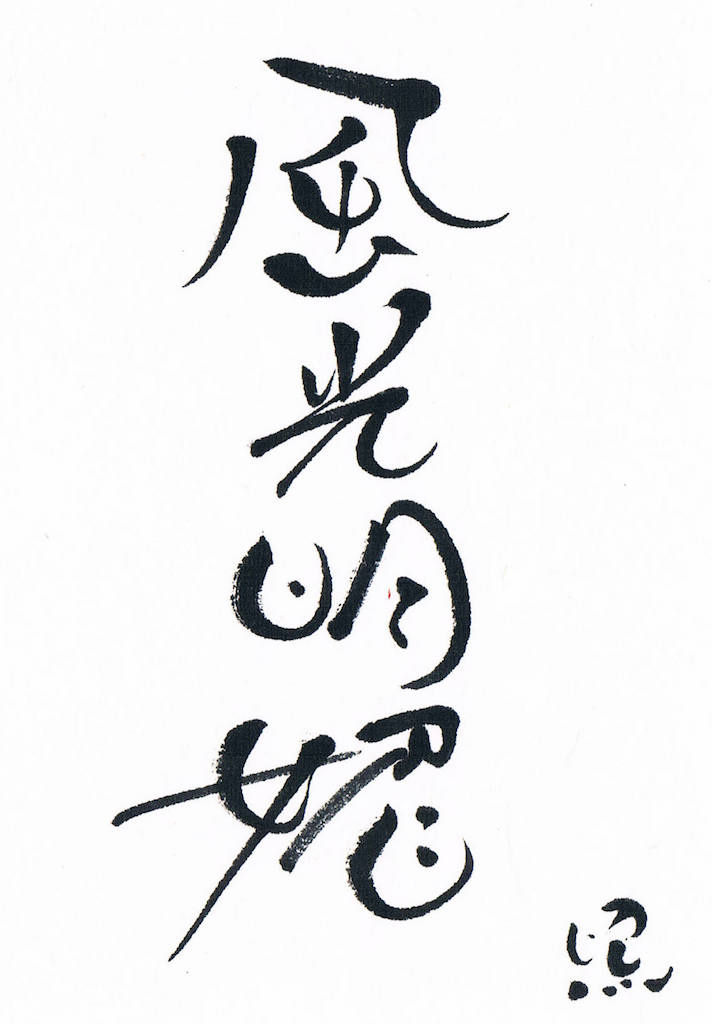 風光明媚
照